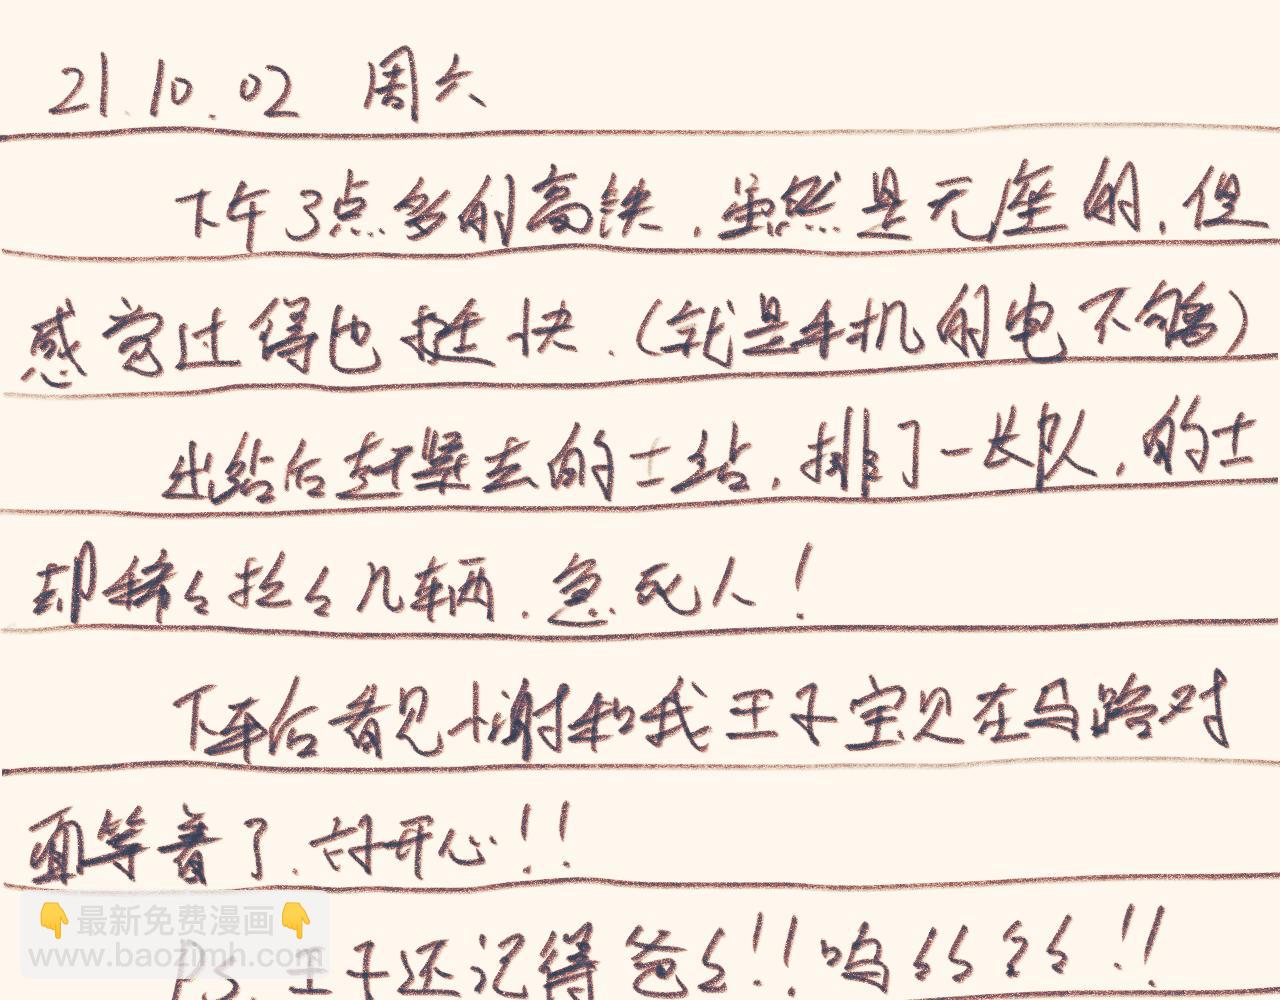 21.10.02 周六
下午3点多的高铁.虽然是无座的,但
感觉过得也挺快.(就是手机的电不够)
出站后赶紧去的士站,排了一长队,的士
却稀々拉々几辆.急死人!
下车后看见小谢和我王子宝贝在马路对
面等着了.好开心!!
👇最新免费漫画👇
www.baozimh.com
PS. 王子还记得爸々!!呜々々々々!!